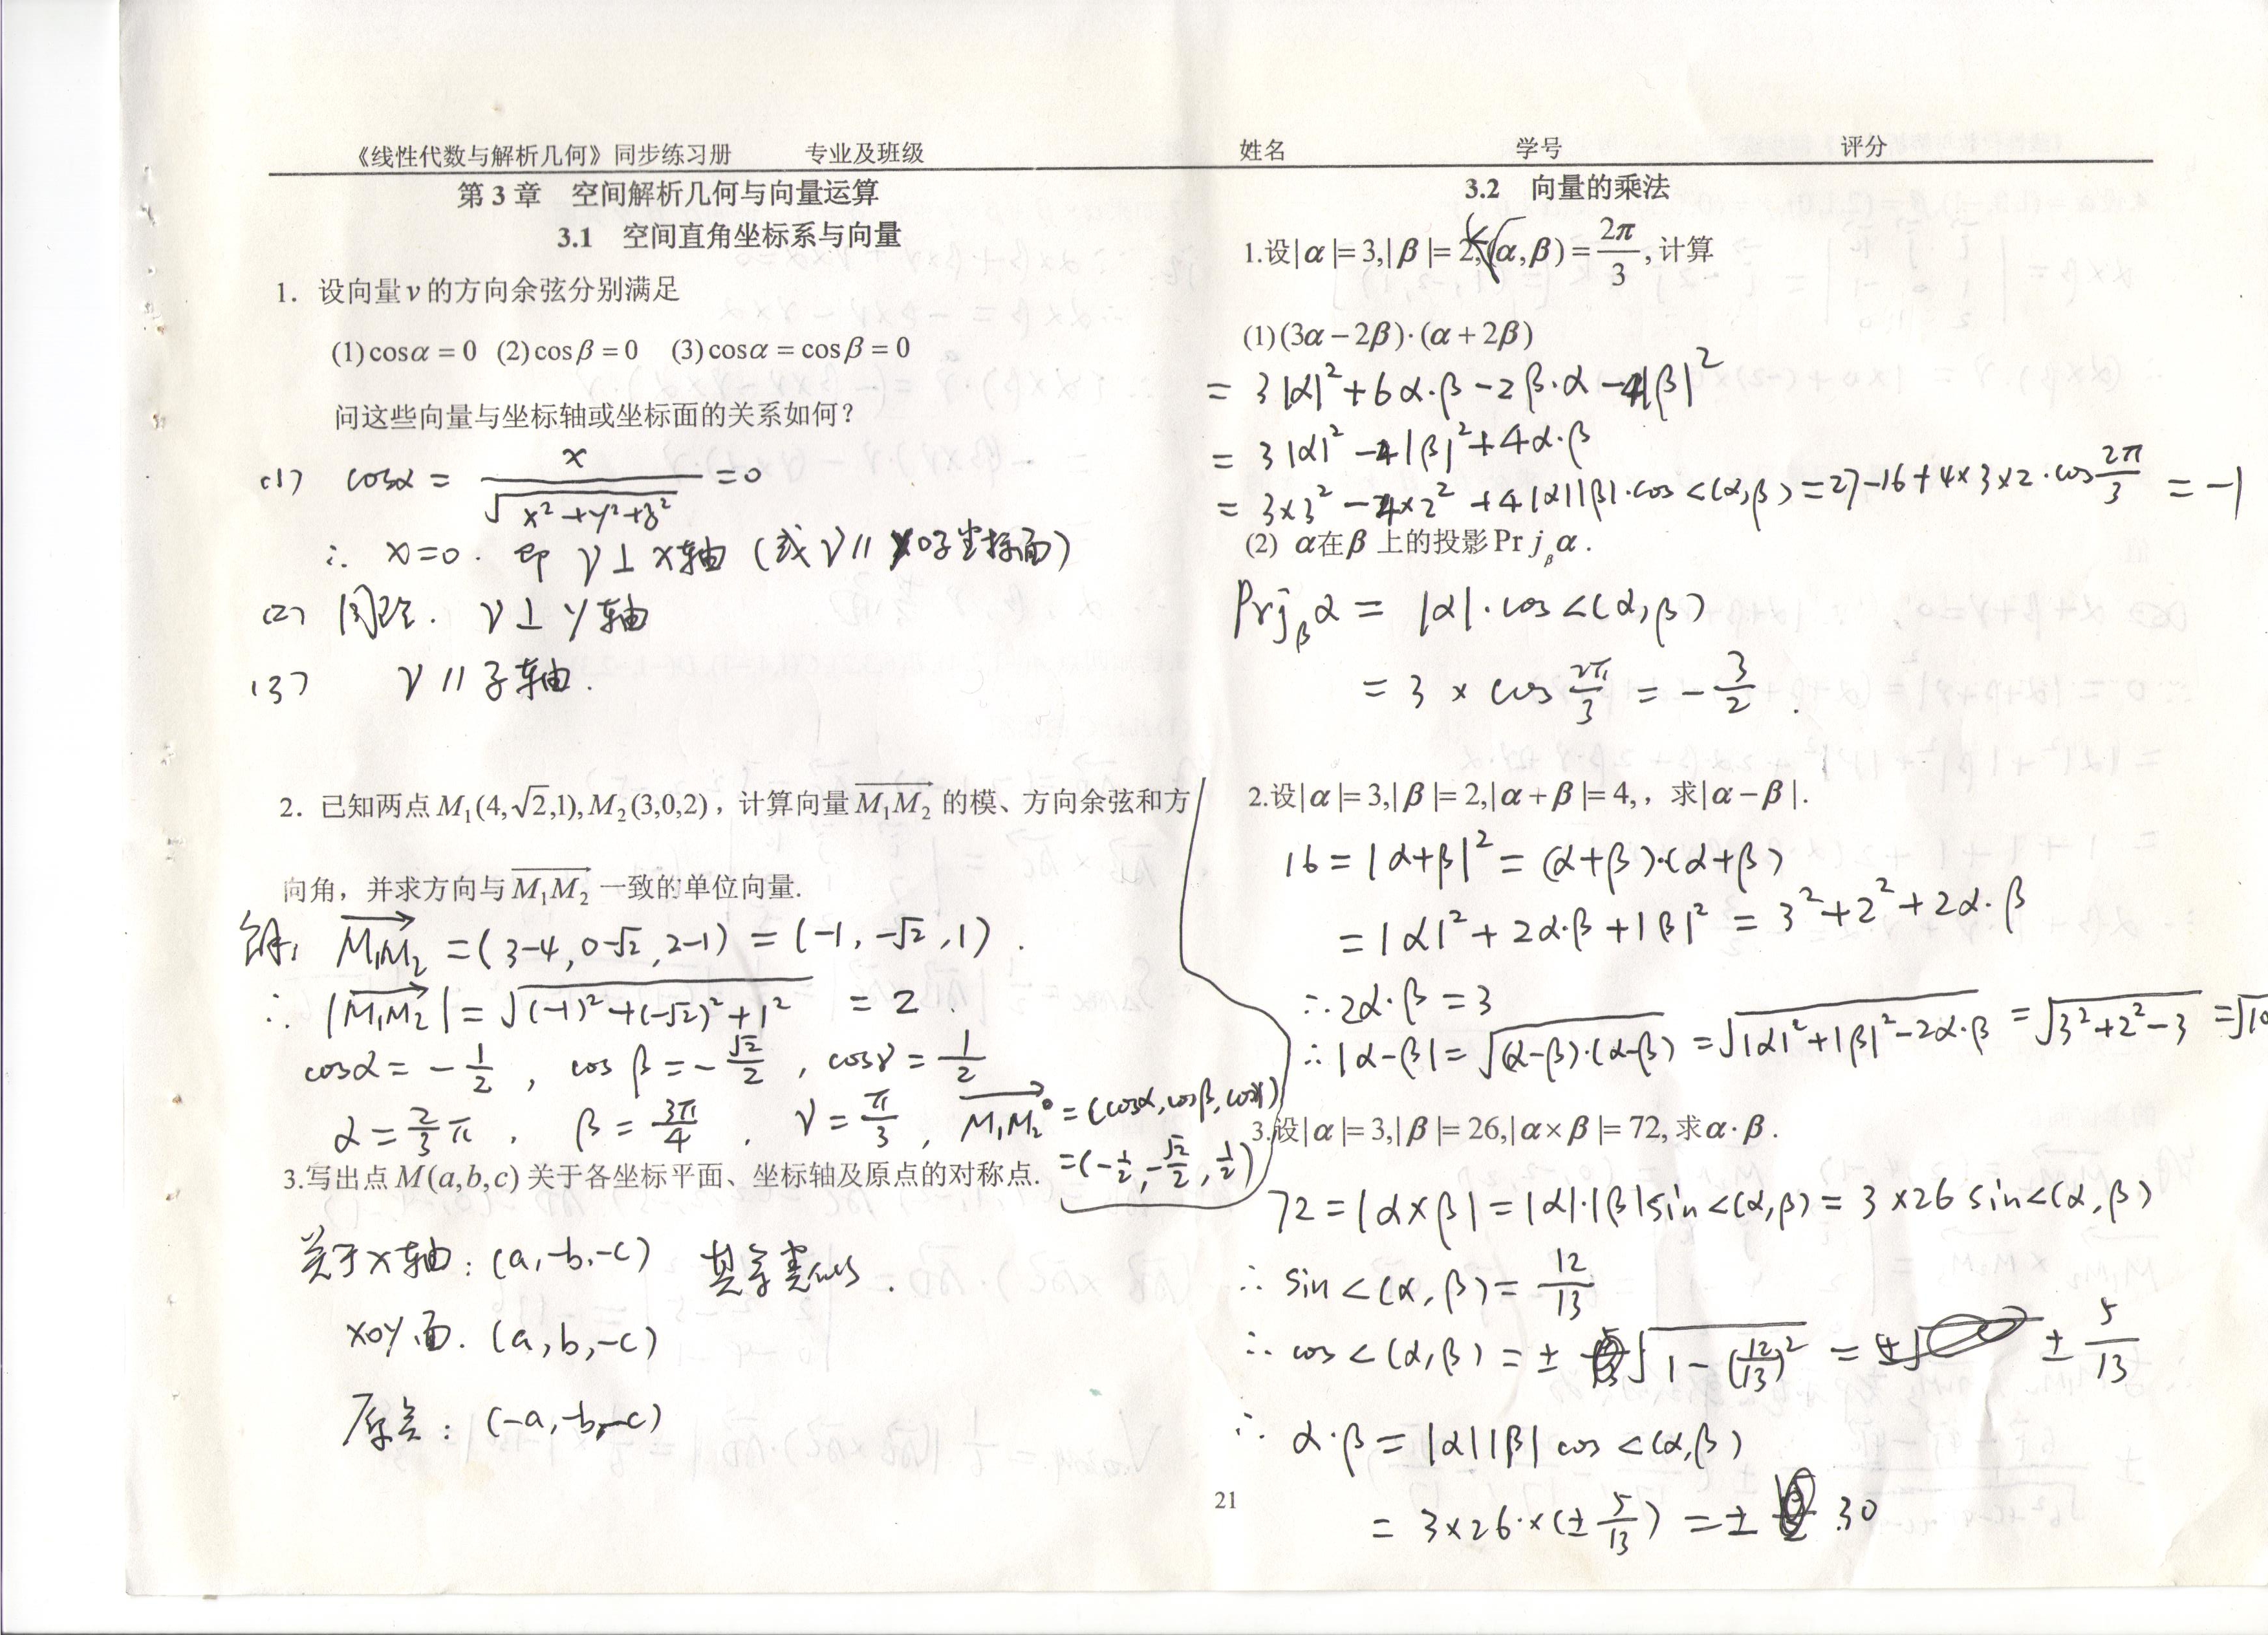 《线性代数与解析几何》同步练习册 专业及班级 姓名 学号 评分
第 3 章 空间解析几何与向量运算
3.1 空间直角坐标系与向量
1. 设向量ν的方向余弦分别满足
(1)cosα = 0 (2)cosβ = 0 (3)cosα = cosβ = 0
问这些向量与坐标轴或坐标面的关系如何?
(1) cosα = x/√(x²+y²+z²) = 0
∴ x=0. 即 ν⊥x轴 (或 ν// yoz坐标面)
(2) 同理. ν⊥y轴
(3) ν // z轴.
2. 已知两点M₁(4,√2,1),M₂(3,0,2), 计算向量M₁M₂的模、方向余弦和方
向角, 并求方向与M₁M₂一致的单位向量.
解: M₁M₂ = (3-4, 0-√2, 2-1) = (-1, -√2, 1).
∴ |M₁M₂| = √((-1)²+(-√2)²+1²) = 2.
cosα = -1/2, cosβ = -√2/2, cosγ = 1/2
α = 2/3 π, β = 3π/4, γ = π/3, M₁M₂° = (cosα, cosβ, cosγ)
= (-1/2, -√2/2, 1/2)
3.写出点M(a,b,c)关于各坐标平面、坐标轴及原点的对称点.
关于x轴: (a,-b,-c) 其余类似.
xoy面. (a,b,-c)
原点: (-a,-b,-c)
3.2 向量的乘法
1.设|α|=3,|β|=2,(α,β)=2π/3,计算
(1)(3α-2β)·(α+2β)
= 3|α|²+6α·β-2β·α-4|β|²
= 3|α|²-4|β|²+4α·β
= 3×3²-4×2²+4|α||β|·cos<(α,β) = 27-16+4×3×2·cos2π/3 = -1
(2) α在β上的投影Prjβα.
Prjβα = |α|·cos<(α,β)
= 3 × cos2π/3 = -3/2.
2.设|α|=3,|β|=2,|α+β|=4,, 求|α-β|.
16 = |α+β|² = (α+β)·(α+β)
= |α|²+2α·β+|β|² = 3²+2²+2α·β
∴ 2α·β = 3
∴ |α-β| = √((α-β)·(α-β)) = √(|α|²+|β|²-2α·β) = √(3²+2²-3) = √10
3.设|α|=3,|β|=26,|α×β|=72,求α·β.
72 = |α×β| = |α|·|β|sin<(α,β) = 3×26 sin<(α,β)
∴ sin<(α,β) = 12/13
∴ cos<(α,β) = ±√(1-(12/13)²) = ±5/13
∴ α·β = |α||β| cos<(α,β)
= 3×26·×(±5/13) = ±30
21